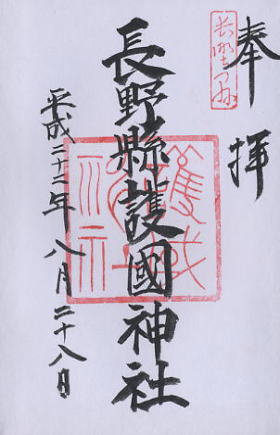 奉拝
長野縣護國神社
平成二十二年八月二十八日